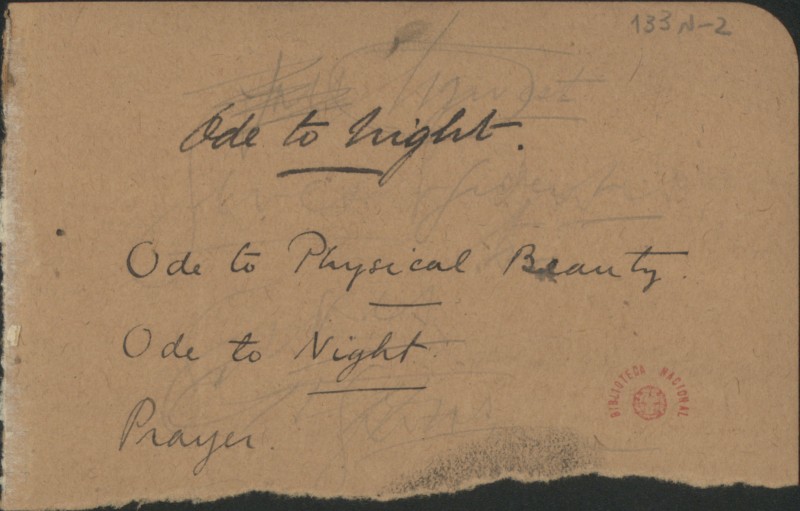 133N-2
Ode to Night.
Ode to Physical Beauty.
Ode to Night.
Prayer.
BIBLIOTECA NACIONAL